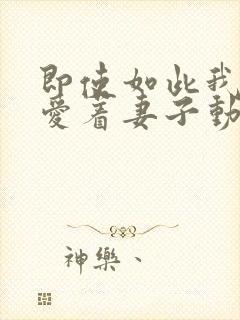 即使如此我
愛着妻子動
神樂、